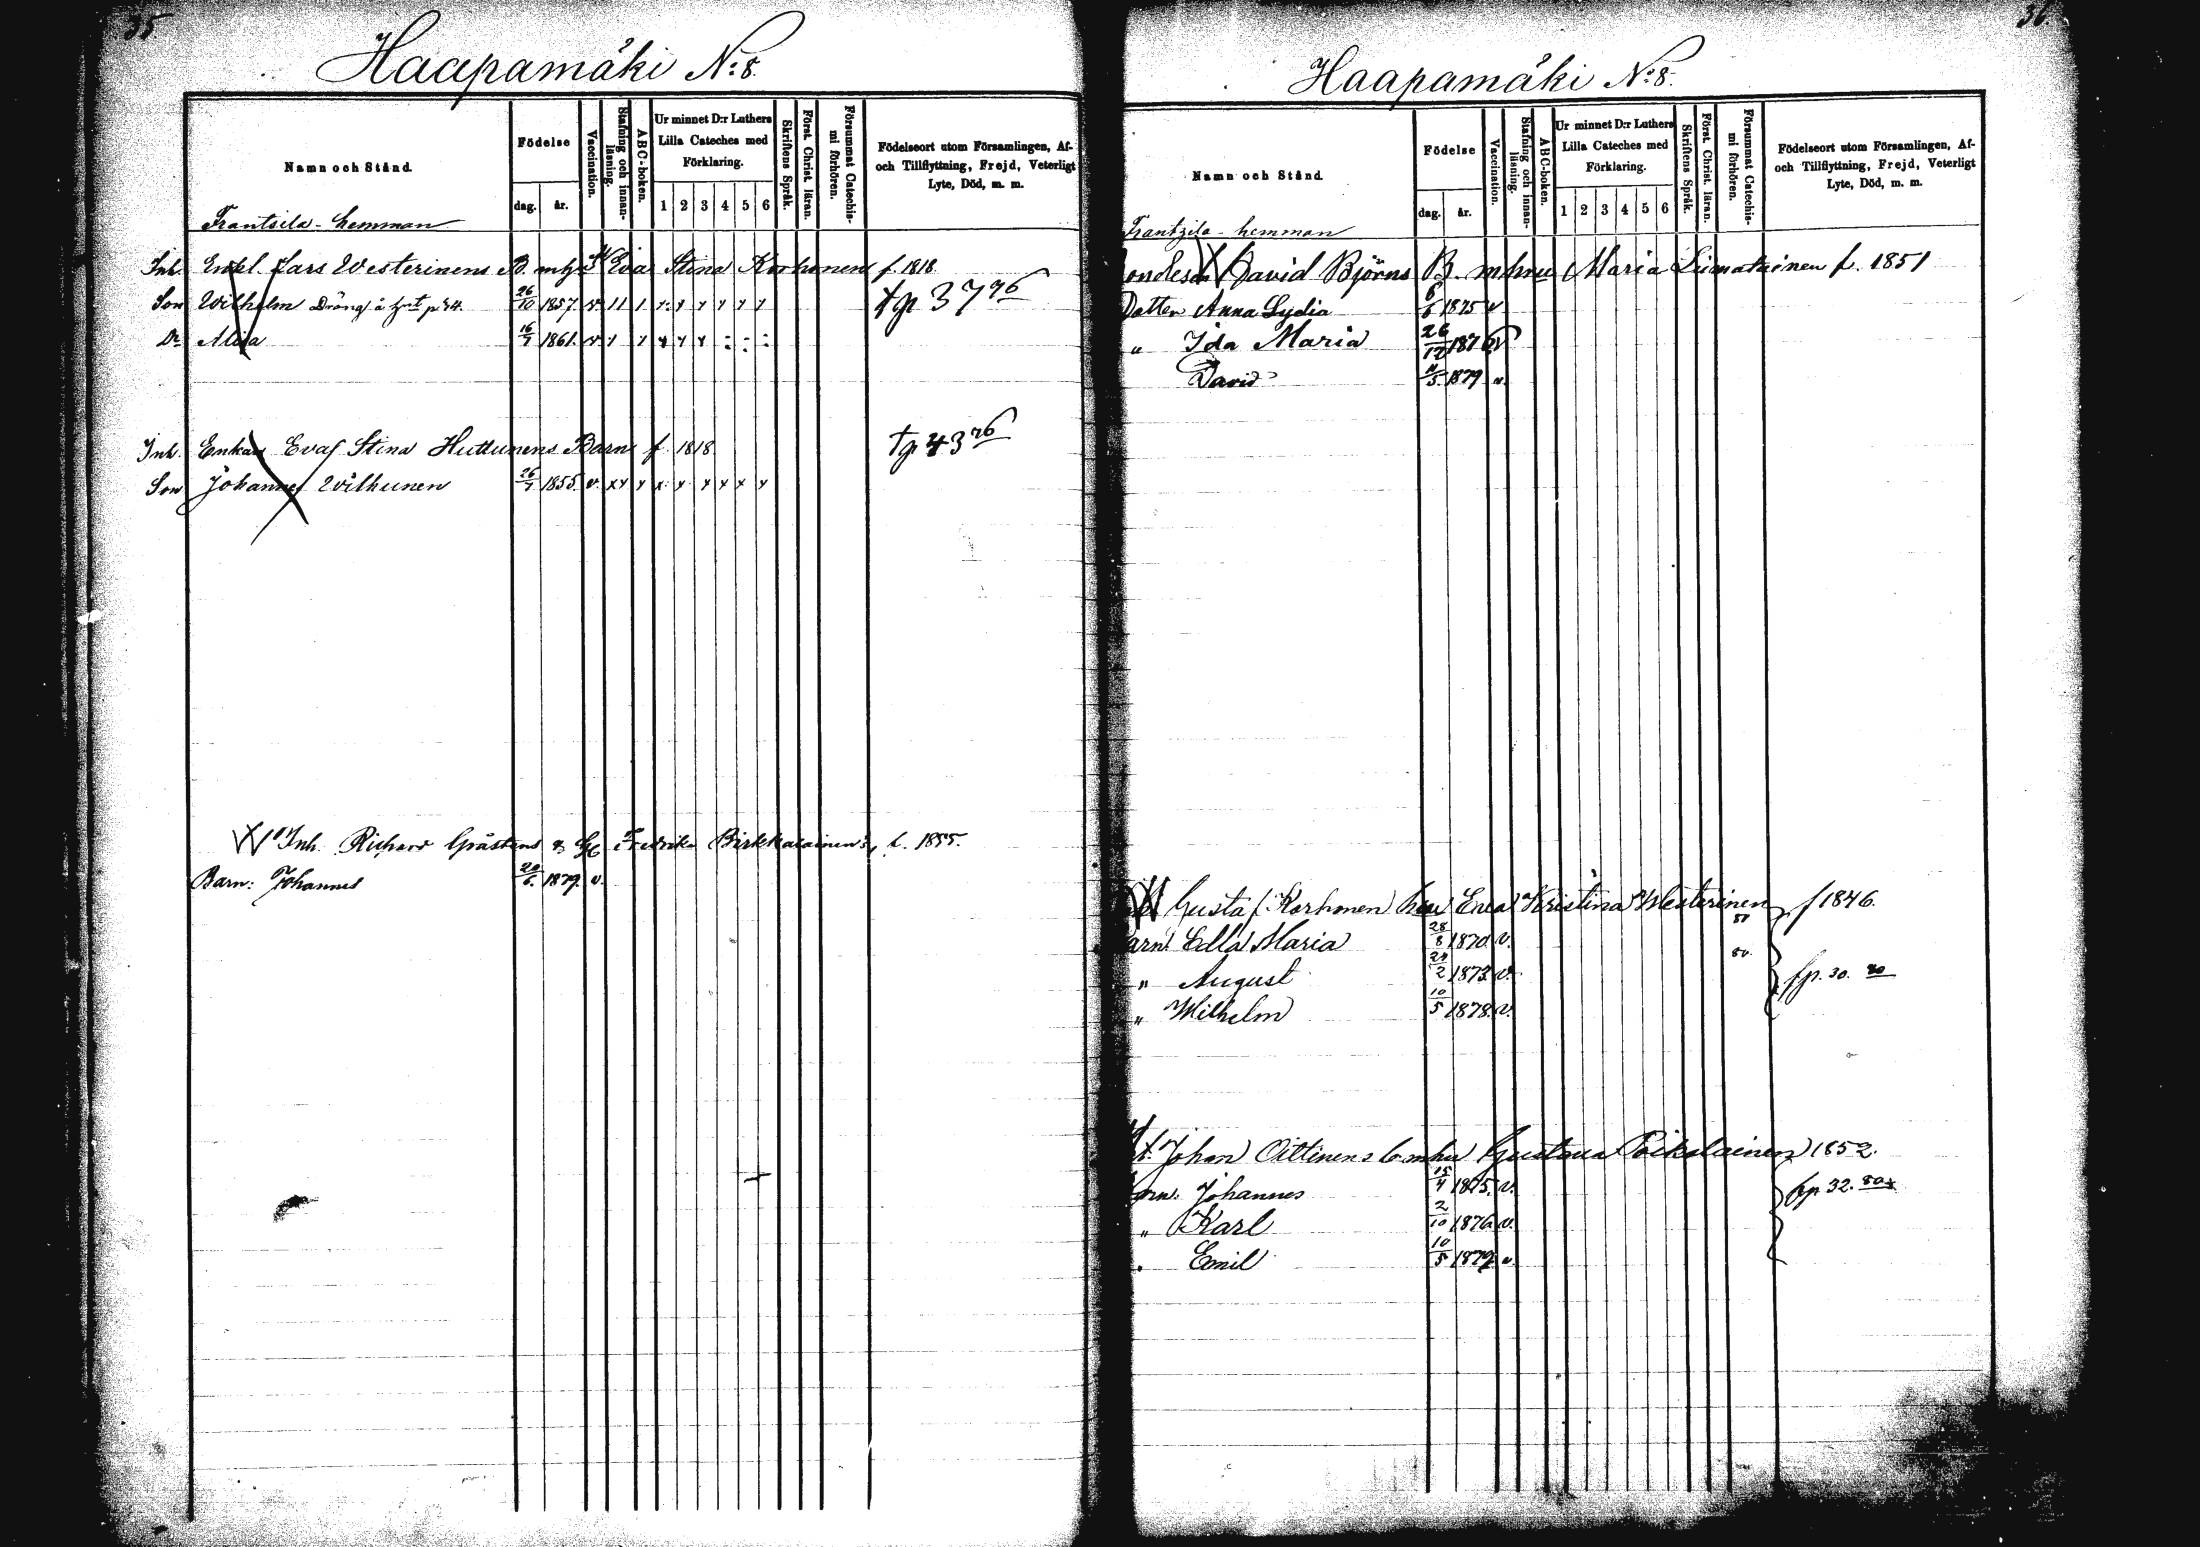 35.
Haapamäki No: 8.
Namn och Stånd.
Födelse
dag. år.
Vaccination.
Stafning och innanläsning.
ABC-boken.
Ur minnet D:r Luthers Lilla Cateches med Förklaring.
1 2 3 4 5 6
Skriftens Språk.
Först. Christ. läran.
Försummat Catechismi förhören.
Födelseort utom Församlingen, Af- och Tillflyttning, Frejd, Veterligt Lyte, Död, m. m.
Frantsila - hemman
Inh. Enkel. Lars Westerinens B. m. Eva Stina Korhonen f. 1818
Son Wilhelm Dräng å p 34. 26/10 1857. v. tp 37 76
Dr 16/7 1861. v
Inh. Enkan Eva Stina Huttunens Barn f. 1818 tp 43 76
Son Johannes Wilhunen 26/7 1855. v.
Inh. Richard Gråstens & Fredrika Birkkalainen's, f. 1855.
Barn: Johannes 20/6. 1879. v.
36.
Haapamäki No: 8.
Namn och Stånd
Födelse
dag. år.
Vaccination.
Stafning och innanläsning.
ABC-boken.
Ur minnet D:r Luthers Lilla Cateches med Förklaring.
1 2 3 4 5 6
Skriftens Språk.
Först. Christ. läran.
Försummat Catechismi förhören.
Födelseort utom Församlingen, Af- och Tillflyttning, Frejd, Veterligt Lyte, Död, m. m.
Frantzila - hemman
David Björns B. m hnu Maria Liimatainen f. 1851
Dotter Anna Lydia 6/6 1875 v
" Ida Maria 26/12 1876 v
David 11/5 1879 v.
Gustaf Korhonen hnu Eva Kristina Westerinen f 1846.
Barn Edla Maria 28/8 1870. v.
" August 24/2 1873. v. fp. 30. 80
" Wilhelm 10/5 1878. v.
Johan Oittinens b m hu Gustava Poikolainen 1852.
Barn. Johannes 15/4 1875. v. fp 32. 80
" Karl 2/10 1876 v.
" Emil 10/5 1879 v.